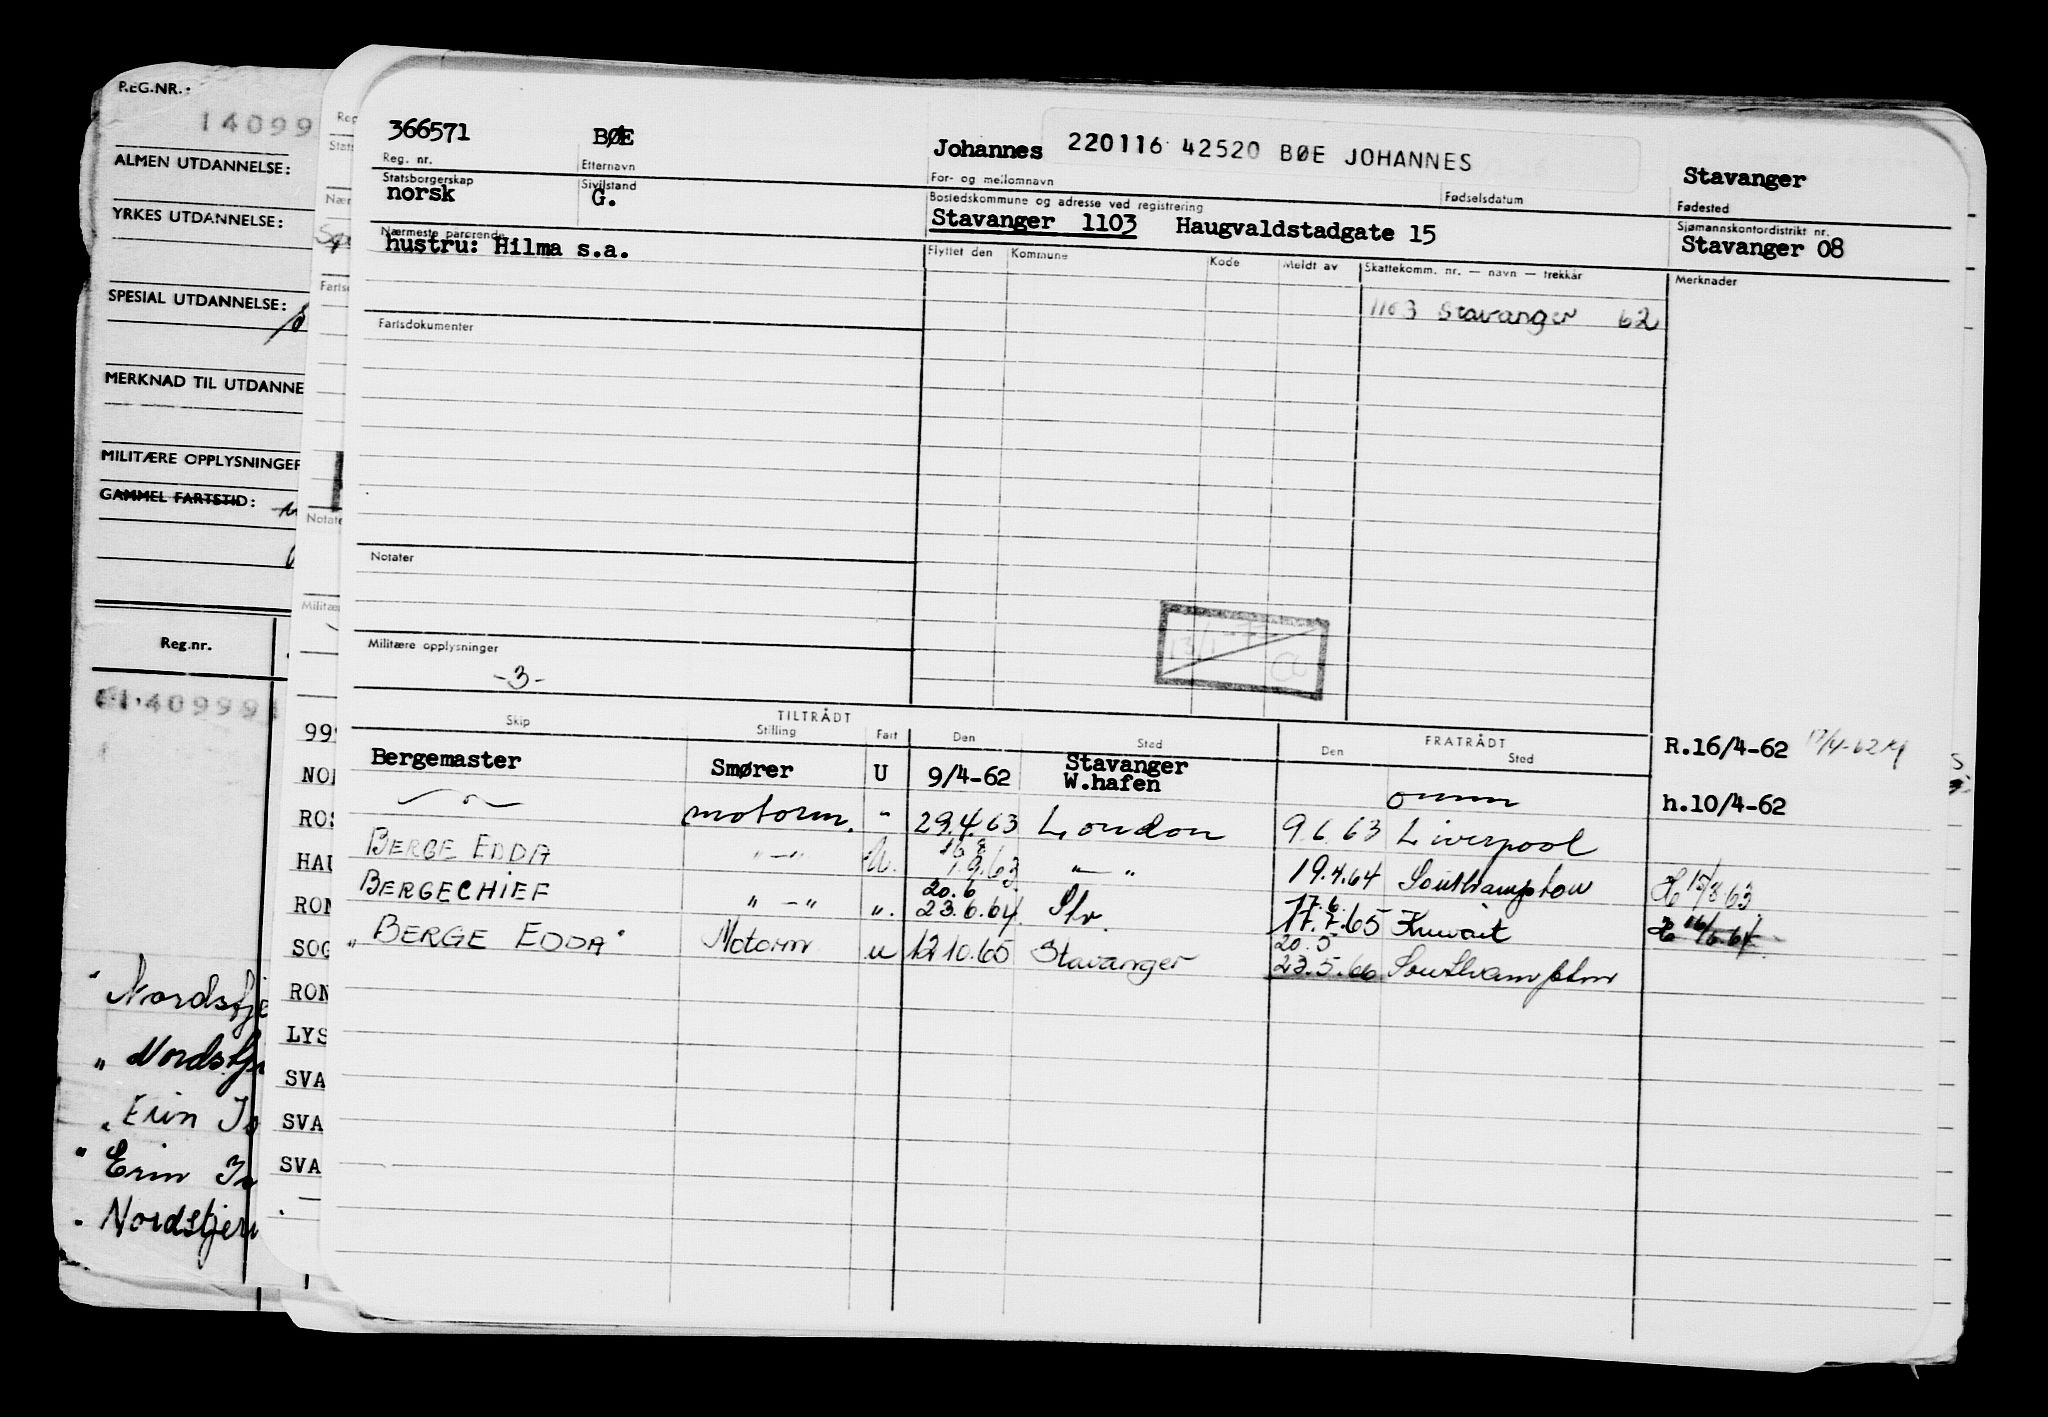 REG.NR.:
14099
ALMEN UTDANNELSE:
YRKES UTDANNELSE:
SPESIAL UTDANNELSE:
MERKNAD TIL UTDANNE
MILITÆRE OPPLYSNINGER
GAMMEL FARTSTID:
Reg.nr.
40999
"Nordstje
"Nordstje
"Erin
"Erin
"Nordstjern
Reg
Stats
Nær
Fartsd
Notate
Militær
99
NO
ROS
HAU
RON
SOG
RON
LYS
SVA
SVA
SVA
366571 BØE Johannes 220116 42520 BØE JOHANNES Stavanger
Reg. nr. Etternavn For- og mellomnavn Fødselsdatum Fødested
Statsborgerskap Sivilstand Bostedskommune og adresse ved registrering Sjømannskontordistrikt nr.
norsk G. Stavanger 1103 Haugvaldstadgate 15 Stavanger 08
Nærmeste pårørende Flyttet den Kommune Kode Meldt av Skattekomm. nr. — navn — trekkår Merknader
hustru: Hilma s.a.
1103 Stavanger 62
Fartsdokumenter
Notater
Militære opplysninger
-3-
TILTRÅDT FRATRÅDT
Skip Stilling Fart Den Sted Den Sted
Bergemaster Smører U 9/4-62 Stavanger W.hafen R.16/4-62
omm h.10/4-62
—"— motorm. " 29.4.63 London 9.6.63 Liverpool
BERGE EDDA "—" U. 1.9.63 "—" 19.4.64 Southampton H 15/8 63
20.6 17.6.
BERGECHIEF "—" ". 23.6.64 Stv. 17.7.65 Kuwait H 16/6.64
20.5
"BERGE EDDA" Motorm u 12 10.65 Stavanger 23.5.66 Southampton